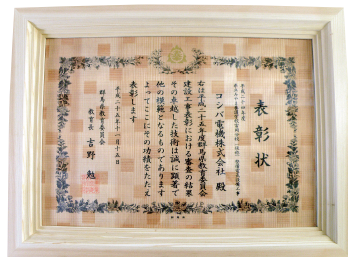 表彰状
平成二十四年度
コシバ電機株式会社 殿
右は平成二十五年度群馬県教育委員会
建設工事表彰における審査の結果
その卓越した技術は誠に顕著で
他の模範となるものであります
よってここにその功績をたたえ
表彰します
平成二十五年十一月十五日
群馬県教育委員会
教育長 吉野 勉